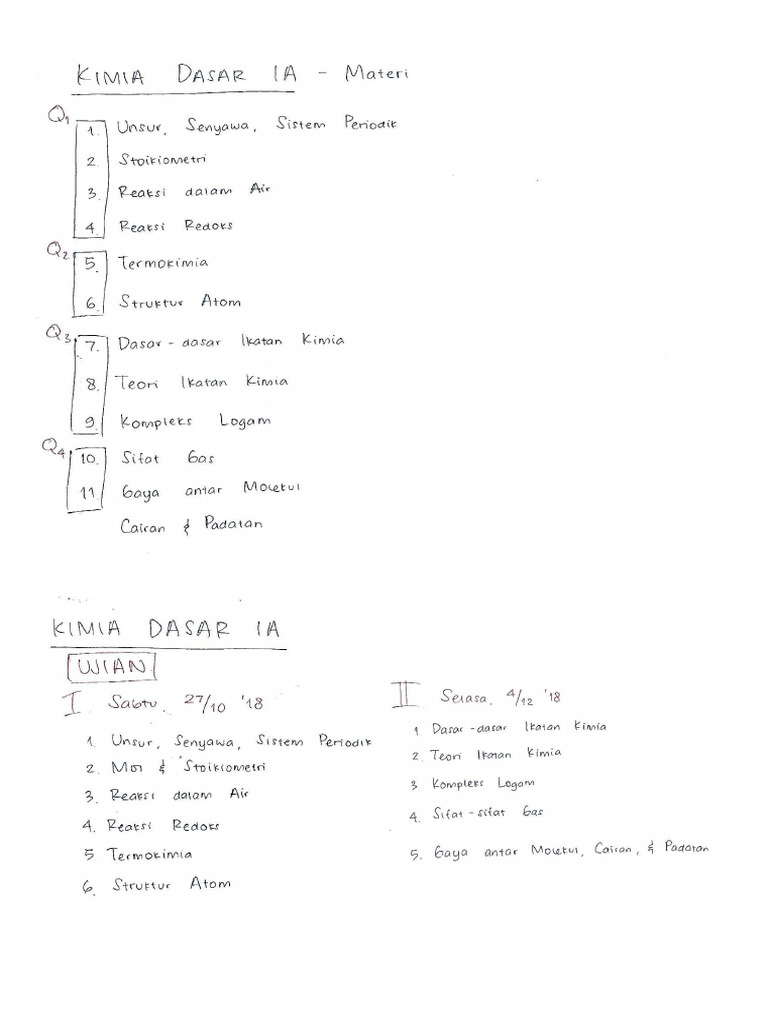 KIMIA DASAR IA - Materi
Q1
1. Unsur, Senyawa, Sistem Periodik
2 Stoikiometri
3. Reaksi dalam Air
4. Reaksi Redoks
Q2
5. Termokimia
6. Struktur Atom
Q3
7. Dasar-dasar Ikatan Kimia
8. Teori Ikatan Kimia
9. Kompleks Logam
Q4
10. Sifat Gas
11 Gaya antar Molekul
Cairan & Padatan
KIMIA DASAR IA
UJIAN
I Sabtu, 27/10 '18
1. Unsur, Senyawa, Sistem Periodik
2. Mol & Stoikiometri
3. Reaksi dalam Air
4. Reaksi Redoks
5 Termokimia
6. Struktur Atom
II Selasa, 4/12 '18
1 Dasar-dasar Ikatan Kimia
2. Teori Ikatan Kimia
3 Kompleks Logam
4. Sifat-sifat Gas
5. Gaya antar Molekul, Cairan, & Padatan